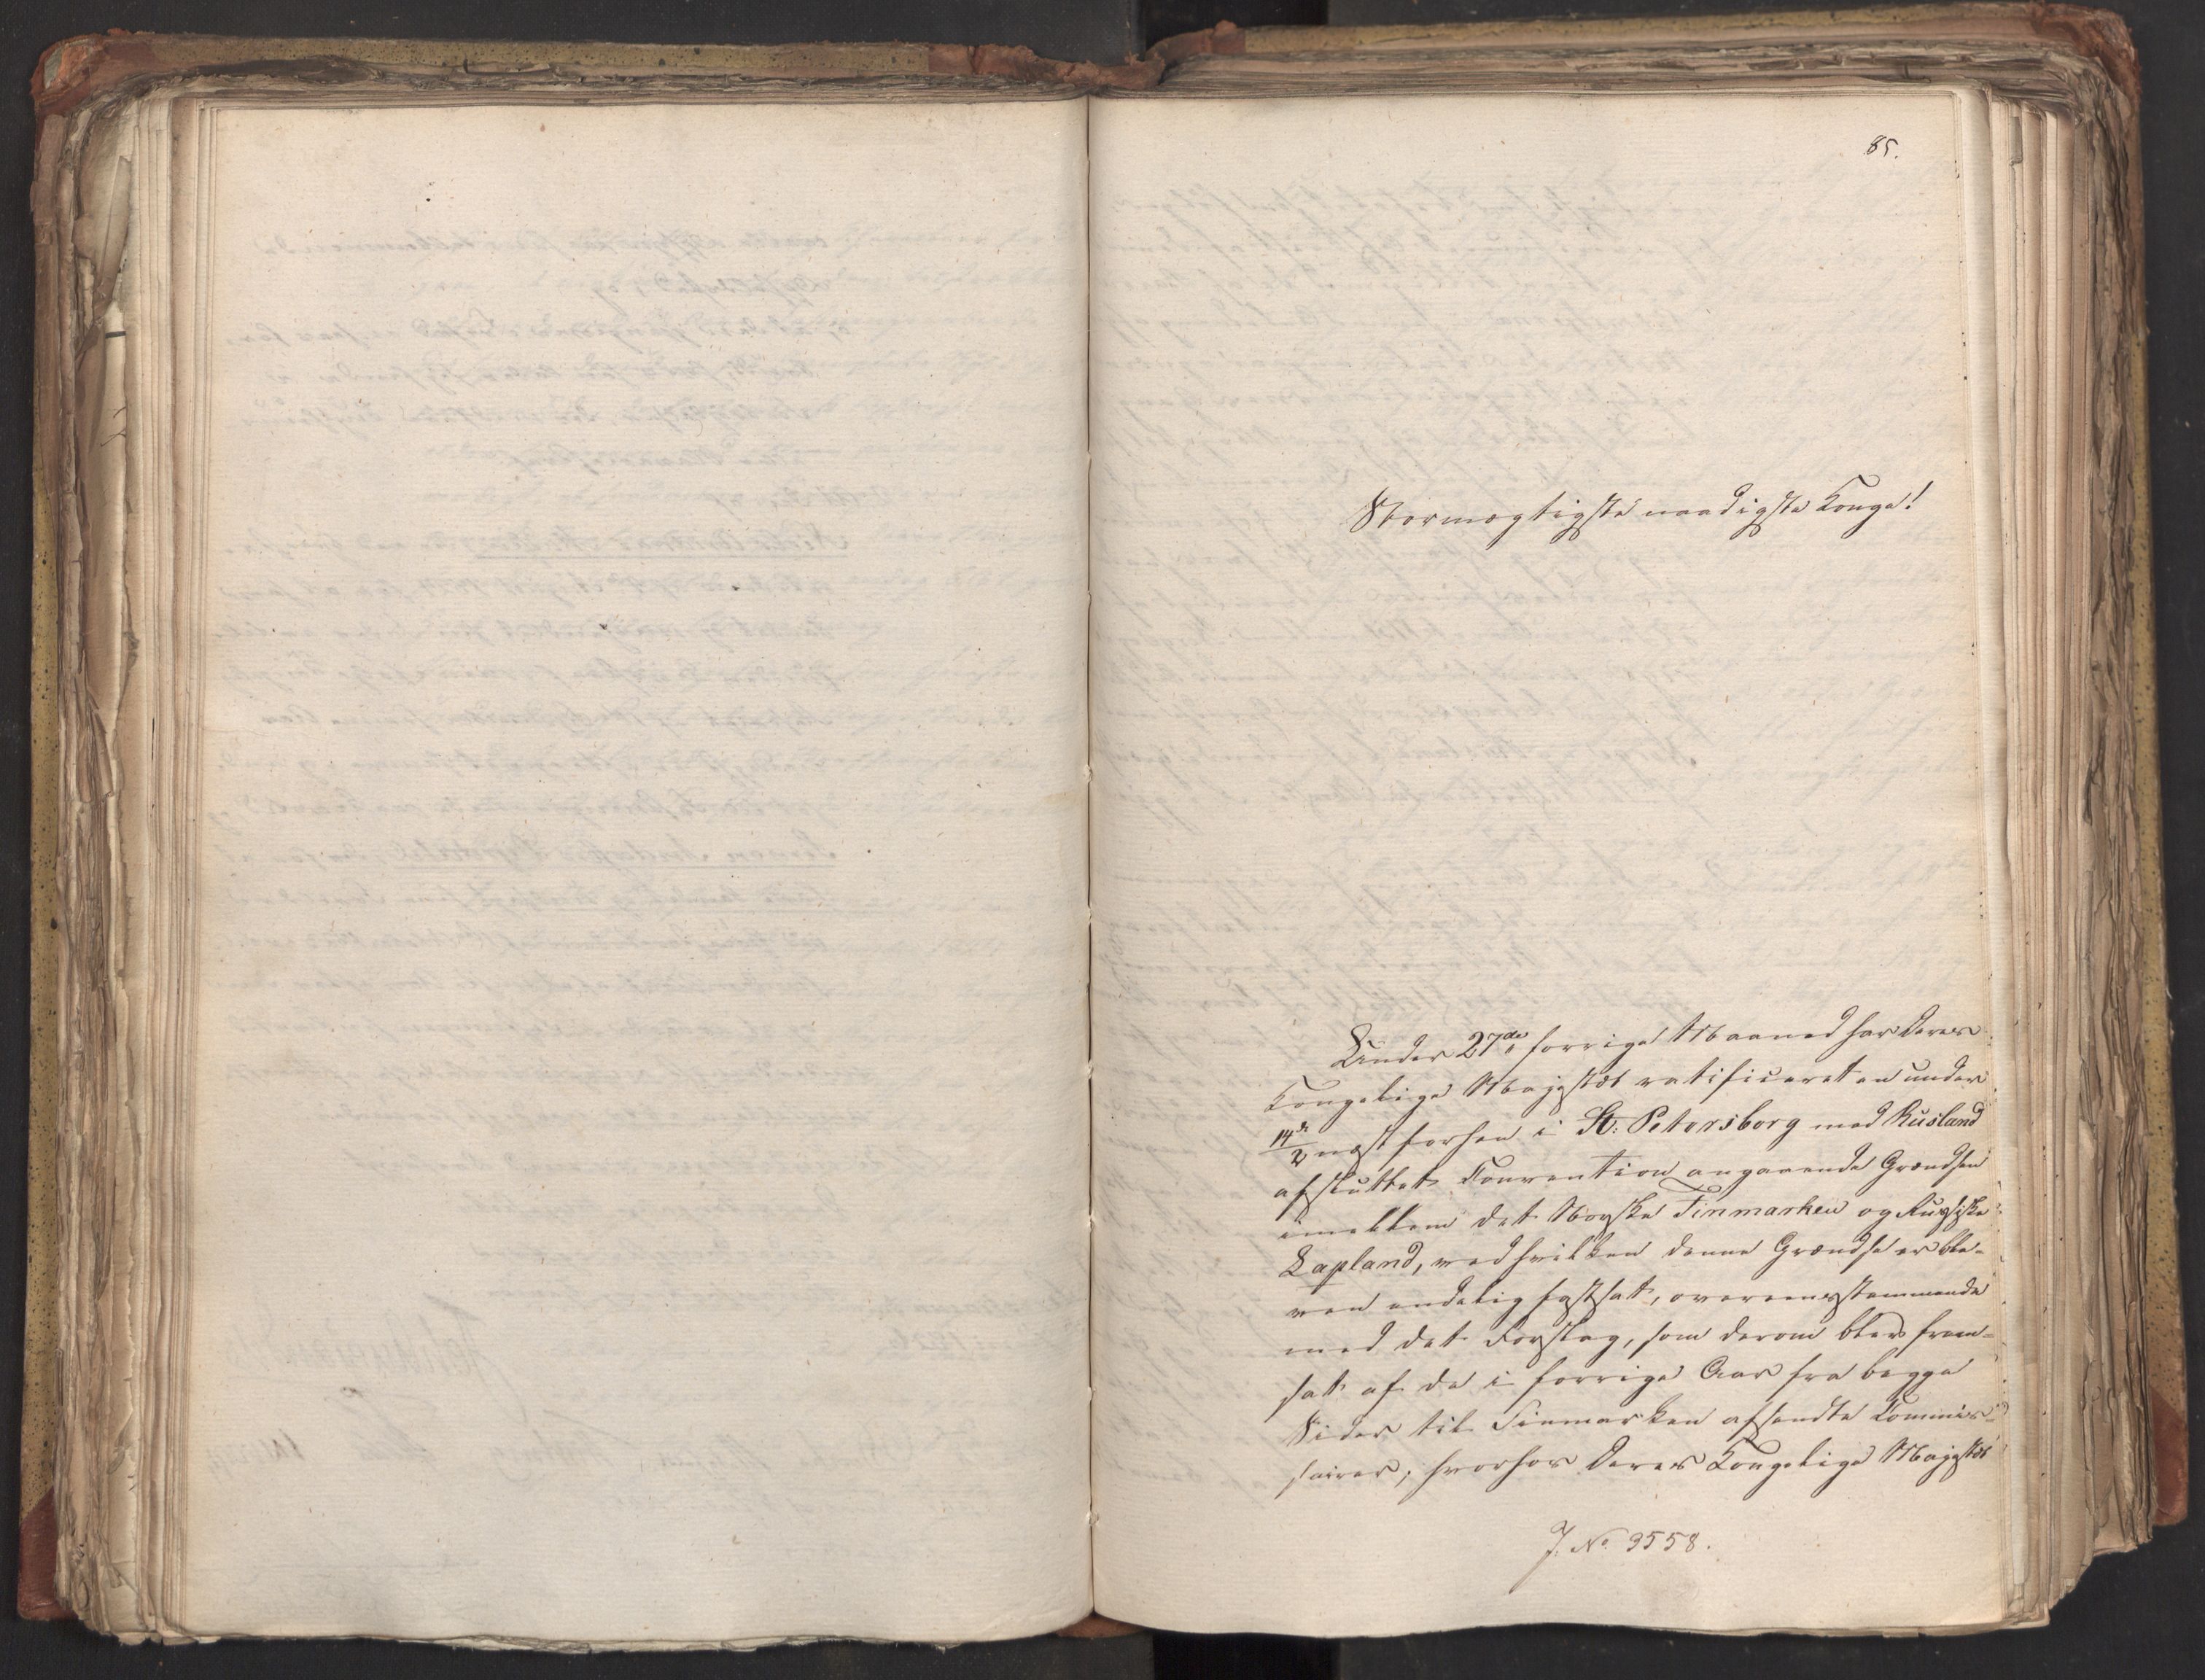 85.
Stormægtigste naadigste Konge!
Under 27de forrige Maaned har Deres
Kongelige Majestæt ratificeret en under
14de/2 næst forhen i St: Petersborg med Rusland
afsluttet Convention angaaende Grændsen
imellem det Norske Finmarken og Russiske
Lapland, ved hvilken denne Grændse er ble-
ven endelig fastsat, overeensstemmende
med det Forslag, som derom blev frem-
sat af de i forrige Aar fra begge
Sider til Finmarken afsendte Commis-
sairer; hvorfor Deres Kongelige Majestæt
J. No 3558.